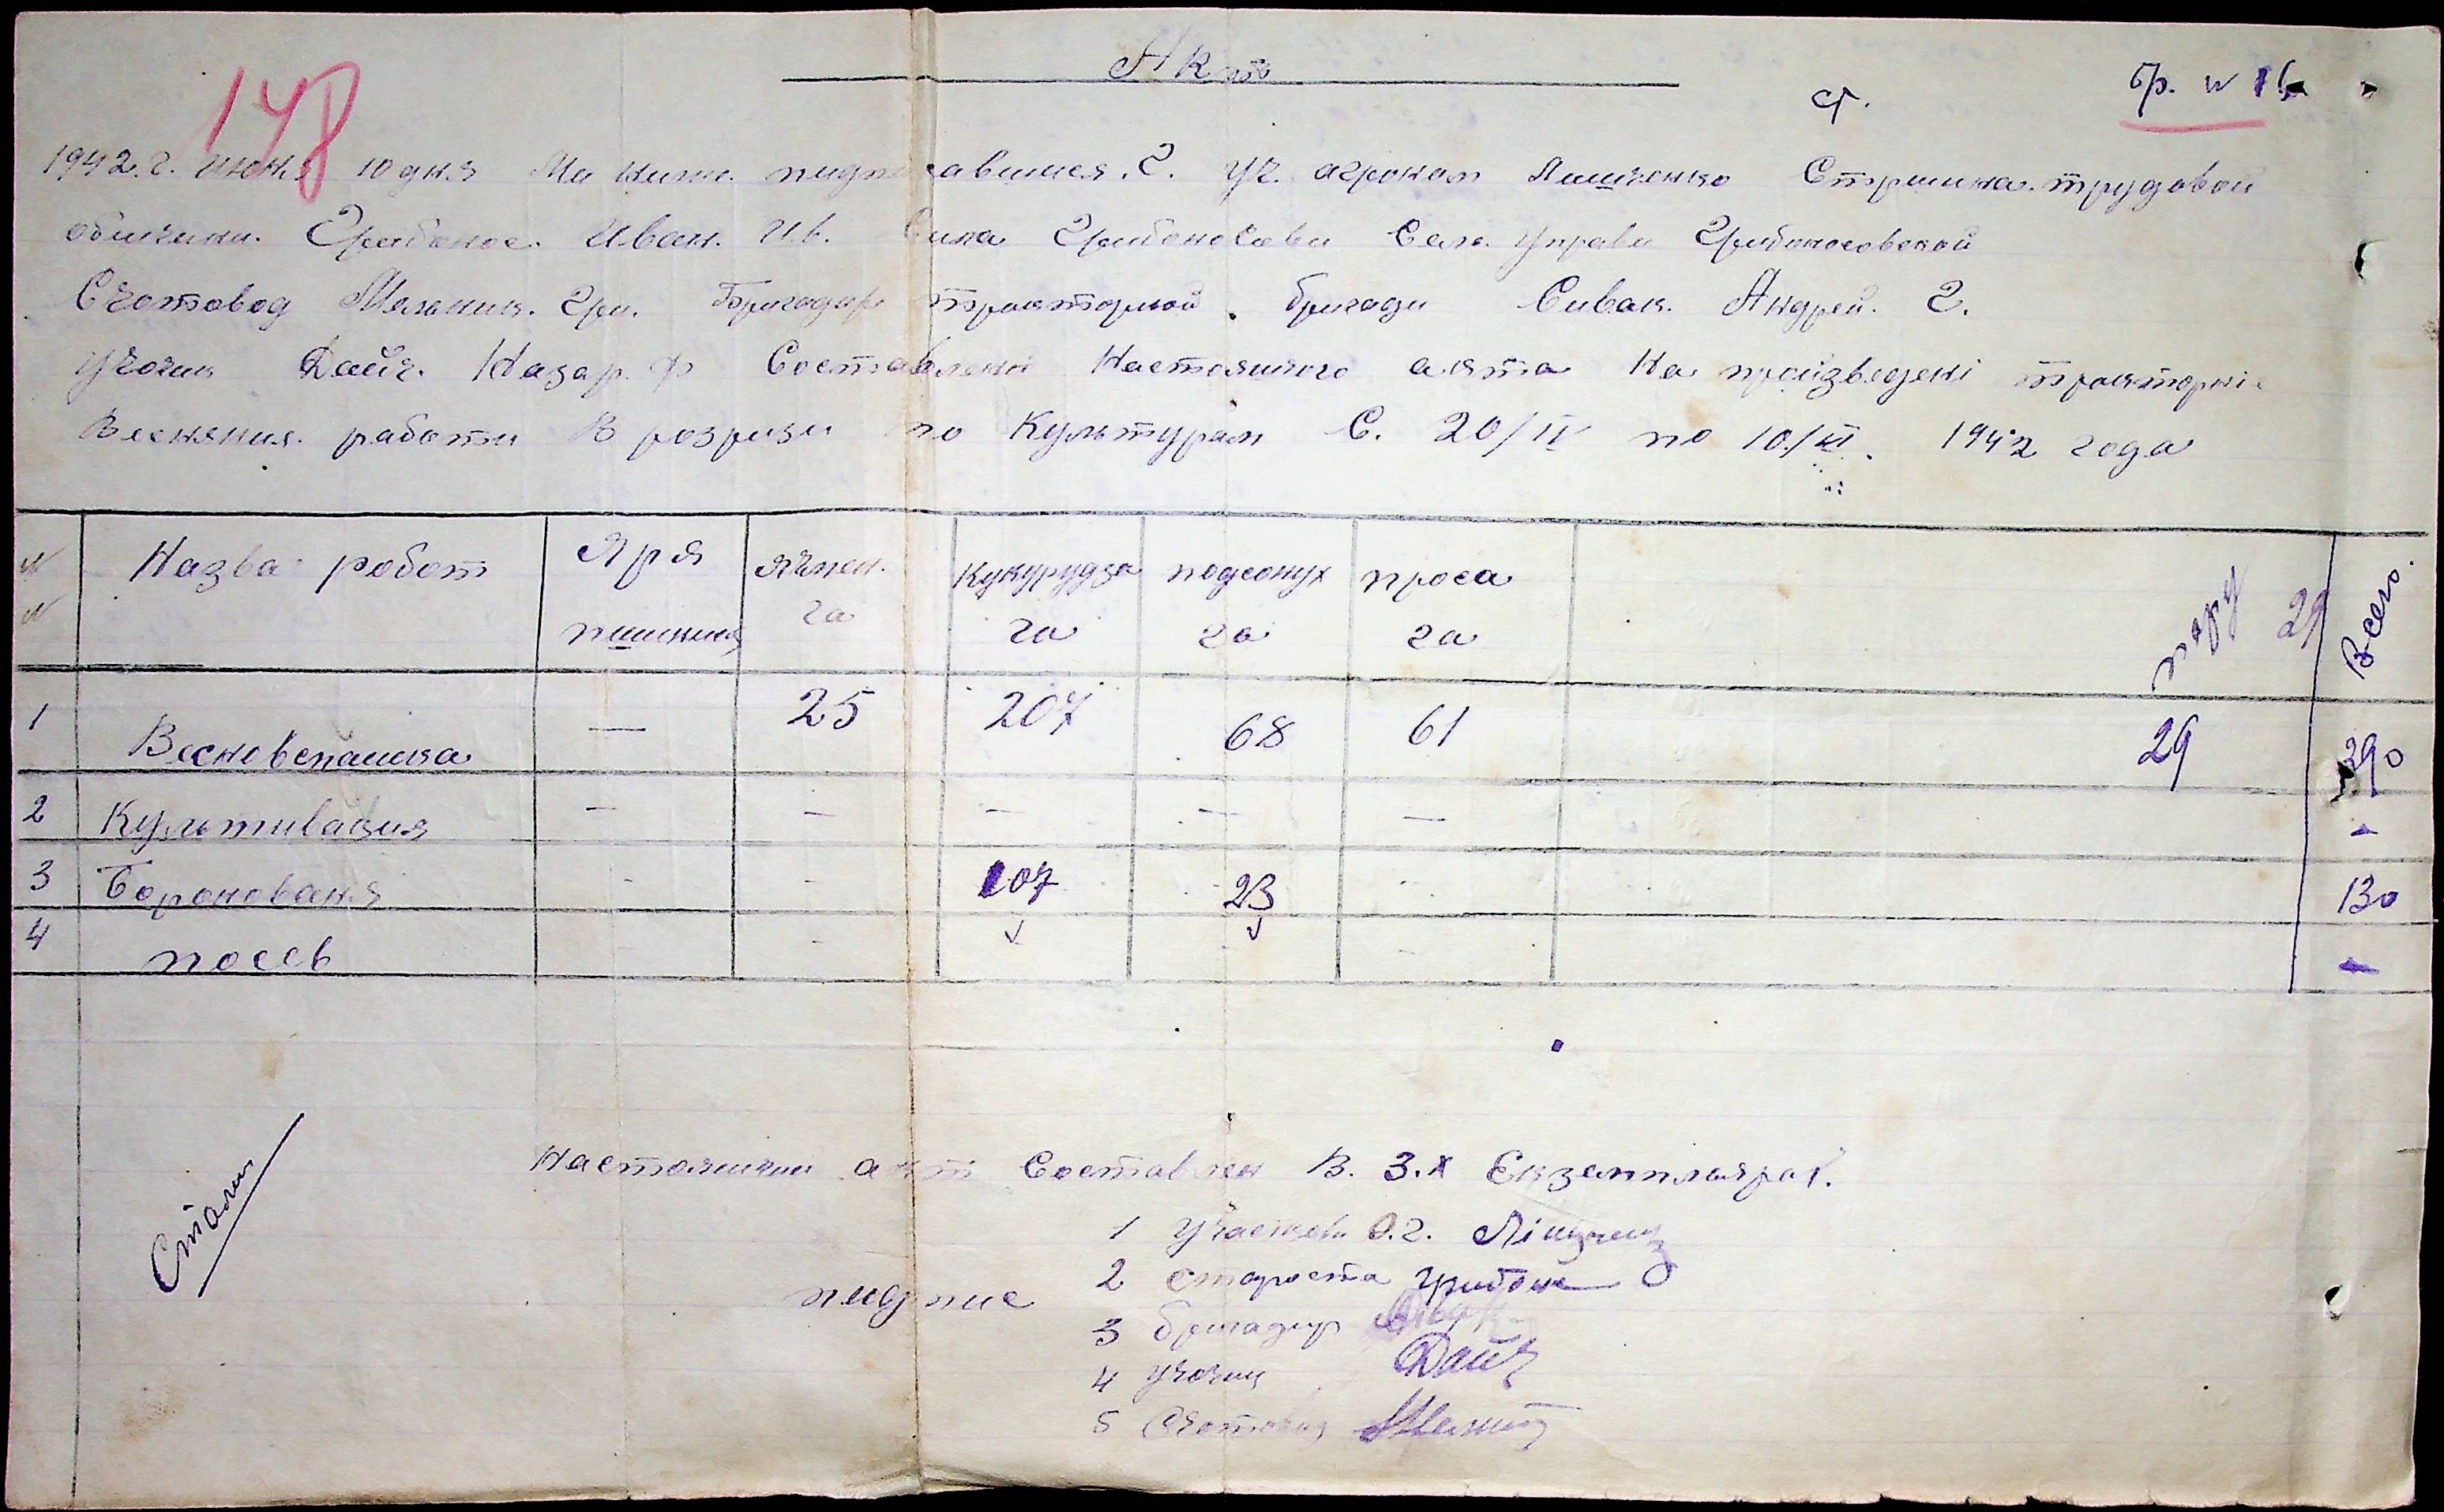 Акт
148
бр. №
ст.
1942. г. июня 10 дня Ми ниже. пидписавшиеся. С. Уч. агроном Ященко Старшина. трудовой
обищини. Грибонос. Иван. Ив. Сила Грибоносова Села. Управи Грибоносовской
Счотовод Мельник. Гри. Бригадир тракторной бригади Сивак. Андрей. Г.
Учочик Дайч. Назар. Ф Составлени Настоящого акта На произведені тракторні
Весняния. работи В розризи по Культурам С. 20/IV по 10/VI. 1942 года
№ № Назва робот Яра пшиниця Ячмен. га Кукурудза га подсонух га проса га пару 29 Всего.
1 Весновспашка — 25 207 68 61 29 390
2 Культивация — — — — — -
3 Боронованя - - 107 23 - 130
4 посев - - - - -
Настоящий акт Составлен В. 3.х Екземплярах.
1 Участков. А.г.
пидпис
2 Староста Грибонос
3 бригадир Сивак
4 Учочик Дайч
5 Счотовод Мельник